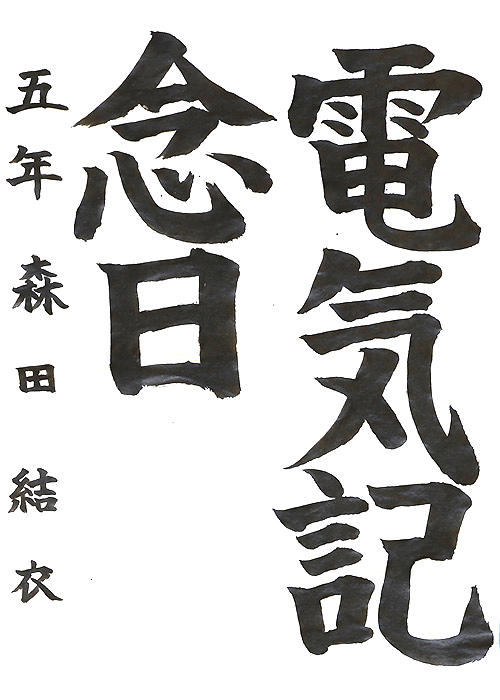 電気記
念日
五年森田結衣